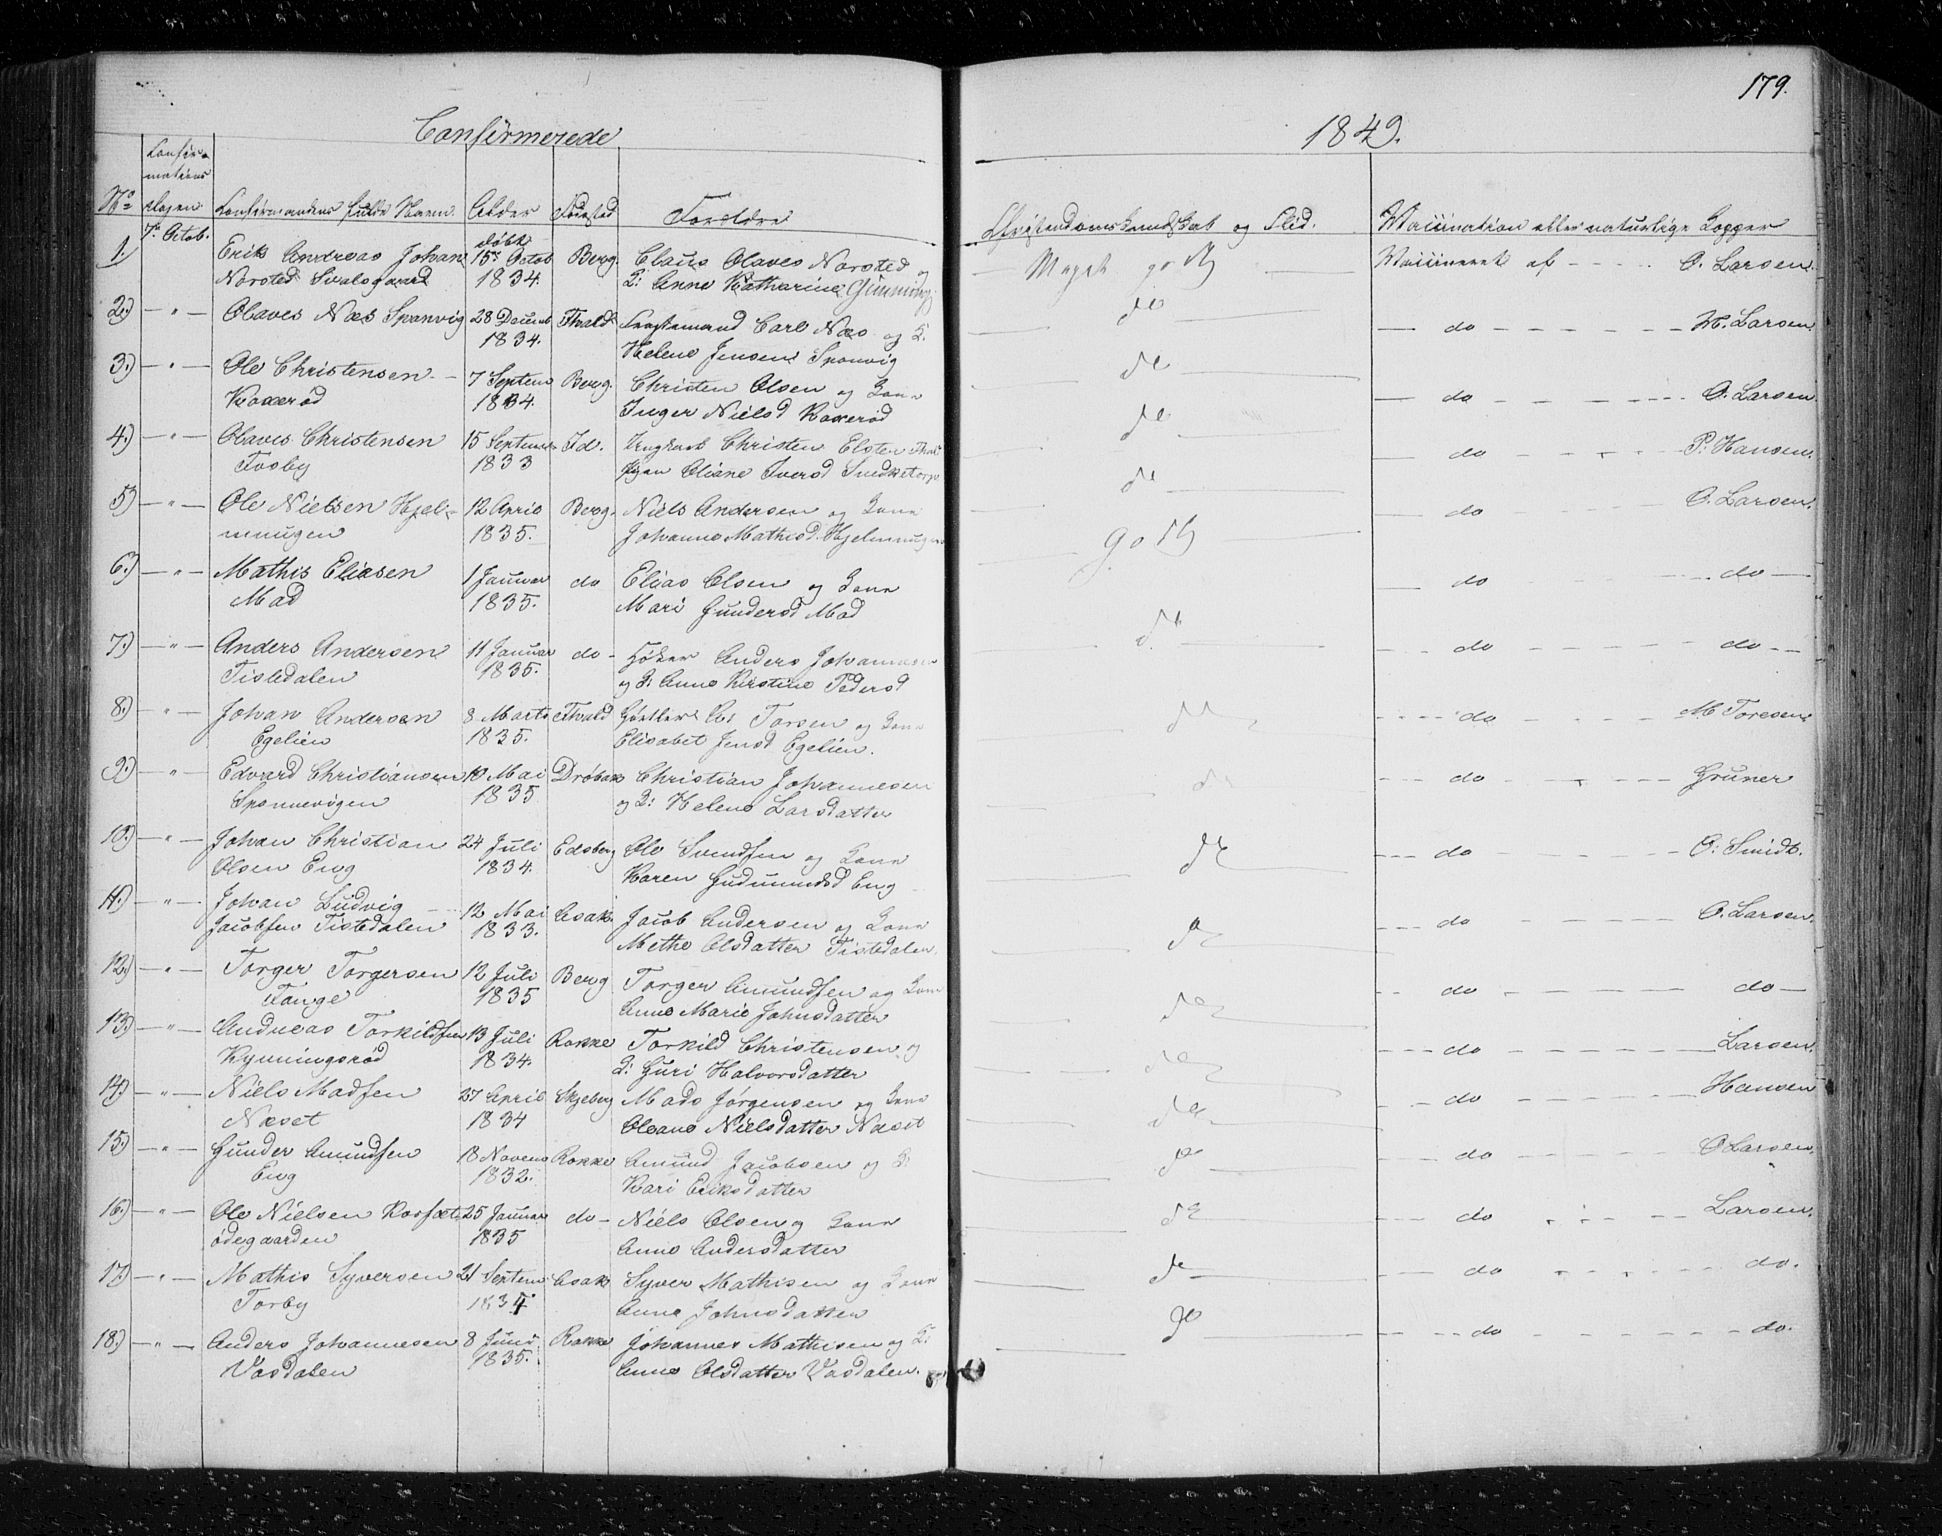 179.
Confirmerede
1849.
No
Confir-
mations
dagen
Confirmandens fulde Navn
Alder
Fødested
Forældre
Christendomskundskab og Flid.
Vaccination eller naturlige Kopper
1.
7de Octob.
Erik Andreas Johan
Norsted Svalsgaard
døbt
15de Octob
1834.
Berg.
Claus Olaves Norsted og
K: Anne Katharine
Meget godt
Vaccineret af - - - O. Larsen.
2.) — " — Olaves Næs Sponvig
28 Decemb
1834.
Fhald
Carl Næs og K.
Helene Jensen Sponvig
do
— do - - - - - - Larsen.
3.) — " — Ole Christensen
Koxerød
7 Septem
1834.
Berg.
Christen Olsen og Kone
Inger Nielsd Koxerød
do
— do - - - - - - O. Larsen
4.) — " — Olaves Christensen
Tosby
15 Septemb
1833
Id.
Ungkarl Christen Elster
Pigen Oliane Iversd
do
do - - - - - P. Hansen.
5) — " — Ole Nielsen Hjel-
muugen
12 April
1835.
Berg.
Niels Andersen og Kone
Johanne Mathisd. Hjelmmugen
do
— do - - - - - O. Larsen.
6.) — " — Mathis Eliasen
Mad
1 Januar
1835.
do
Elias Olsen og Kone
Mari Gundersd Mad
godt
— do - - - - do —
7.) — " — Anders Andersen
Tistedalen
11 Januar
1835.
do -
Høker Anders Johannesen
og K: Anne Kirstine Pedersd
do
do - - - - do - -
8.) " — Johan Andersen
Egelien
8 Marts
1835.
Fhald
Torsen og Kone
Elisabet Jensd Egelien.
do
- - - - do - - - - M Toresen
9.) " — Edvard Christiansen
Sponvevigen
10 Mai
1835
Drøbak
Christian Johannesen
og K: Helene Larsdatter
do
- - - do - - - - - Gruner
10.) — " — Johan Christian
Olsen Eng
24 Juli
1834.
Edsberg
Ole Svendsen og Kone
Karen Gudmundsd Eng
do
- - - do - - - - - O: Smidt.
11.) — " — Johan Ludvig
Jacobsen Tistedalen
12 Mai
1833.
Asak.
Jacob Andersen og Kone
Methe Olsdatter Tistedalen.
do
- - - do - - - - - O. Larsen.
12.) — " — Torger Torgersen
Tange
12 Juli
1835
Berg
Torger Amundsen og Kone
Anne Marie Johnsdatter
do
- - do - - - - - do —
13.) " — Andreas Torkildsen
Kynningsrød
13 Juli
1834.
Rokke
Torkild Christensen og
K: Guri Halvorsdatter
do
- - - do - - - - - Larsen.
14.) — " — Niels Madsen
Næset
27 April
1834
Skjeberg
Mads Jørgensen og Kone
Oleane Nielsdatter Næset
do
- - do - - - - - Hansen
15.) — " — Gunder Amundsen
Eng
18 Novem
1832.
Rokke
Amund Jacobsen og K:
Kari Eriksdatter
do
- - - do - - - - - O Larsen.
16.) — " — Ole Nielsen
ødegaarden
25 Januar
1835
do -
Niels Olsen og Kone
Anne Andersdatter
do
- - - do - - - - - Larsen.
17.) — " — Mathis Syversen
Torby
21 Septem
1834
Asak
Syver Mathisen og Kone
Anne Johnsdatter
do
- - - do - - - - - do.
18.) — " — Anders Johannesen
Vasdalen
8 Juni
1835.
Rokke
Johannes Mathisen og K:
Anne Olsdatter Vasdalen.
do
- - - do - - - - - do.